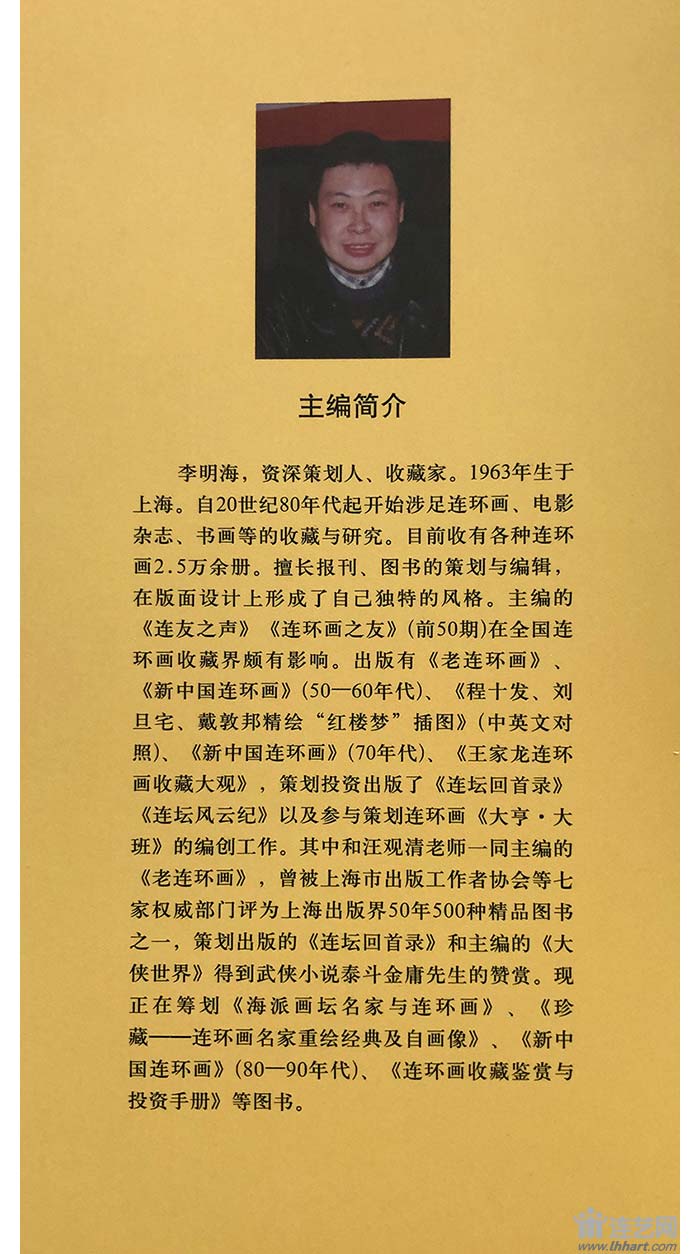 主编简介
李明海，资深策划人、收藏家。1963年生于
上海。自20世纪80年代起开始涉足连环画、电影
杂志、书画等的收藏与研究。目前收有各种连环
画2.5万余册。擅长报刊、图书的策划与编辑，
在版面设计上形成了自己独特的风格。主编的
《连友之声》《连环画之友》(前50期)在全国连
环画收藏界颇有影响。出版有《老连环画》、
《新中国连环画》(50—60年代)、《程十发、刘
旦宅、戴敦邦精绘“红楼梦”插图》(中英文对
照)、《新中国连环画》(70年代)、《王家龙连环
画收藏大观》，策划投资出版了《连坛回首录》
《连坛风云纪》以及参与策划连环画《大亨·大
班》的编创工作。其中和汪观清老师一同主编的
《老连环画》，曾被上海市出版工作者协会等七
家权威部门评为上海出版界50年500种精品图书
之一，策划出版的《连坛回首录》和主编的《大
侠世界》得到武侠小说泰斗金庸先生的赞赏。现
正在筹划《海派画坛名家与连环画》、《珍
藏——连环画名家重绘经典及自画像》、《新中
国连环画》(80—90年代)、《连环画收藏鉴赏与
投资手册》等图书。
连艺网
www.lhhart.com